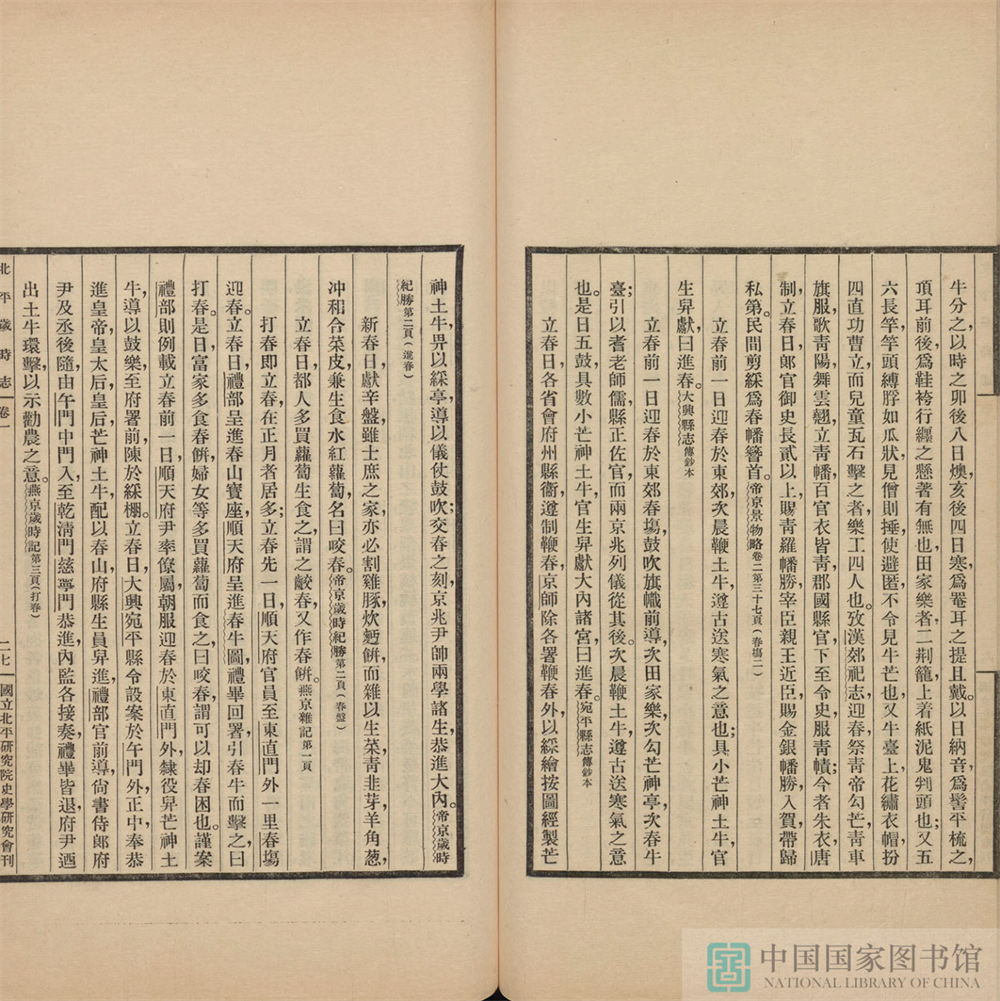 牛分之，以時之卯後八日燠，亥後四日寒，爲罨耳之提且戴。以日納音，爲髻平梳之，
項耳前後，爲鞋袴行纏之懸著有無也。田家樂者，二荆籠，上着紙泥鬼判頭也；又五
六長竿，竿頭縛脬如瓜狀，見僧則捶使避匿，不令見牛芒也。又牛臺上，花繡衣帽，扮
四直功曹立，而兒童瓦石擊之者，樂工四人也。攷漢郊祀志迎春祭青帝勾芒，青車
旗服，歌青陽，舞雲翹，立青幡，百官衣皆青，郡國縣官下至令史，服青幘；今者朱衣，唐
制立春日，郎官御史長貳以上，賜青羅幡勝，宰臣親王近臣，賜金銀幡勝，入賀帶歸
私第。民間剪綵爲春幡簪首。帝京景物略卷二第三十七頁（春場二）
立春前一日迎春於東郊，次晨鞭土牛，遵古送寒氣之意也；具小芒神土牛，官
生舁獻，曰進春。大興縣志傳鈔本
立春前一日，迎春於東郊春塲，鼓吹旗幟前導，次田家樂，次勾芒神亭，次春牛
臺；引以耆老師儒，縣正佐官，而兩京兆列儀從其後。次晨鞭土牛，遵古送寒氣之意
也。是日五鼓，具數小芒神土牛，官生舁獻大內諸宮，曰進春。宛平縣志傳鈔本
立春日，各省會府州縣衞遵制鞭春。京師除各署鞭春外，以綵繪按圖經製芒
神土牛，舁以綵亭，導以儀仗鼓吹；交春之刻，京兆尹帥兩學諸生恭進大內。帝京歲時
紀勝第二頁（進春）
新春日獻辛盤，雖士庶之家，亦必割雞豚，炊麵餅，而雜以生菜，青韭芽，羊角葱，
冲和合菜皮，兼生食水紅蘿蔔，名曰咬春。帝京歲時紀勝第二頁（春盤）
立春日，都人多買蘿蔔生食之，謂之齩春，又作春餅。燕京雜記第一頁
打春即立春，在正月者居多；立春先一日，順天府官員至東直門外一里春塲
迎春。立春日，禮部呈進春山寶座，順天府呈進春牛圖，禮畢回署，引春牛而擊之，曰
打春。是日，富家多食春餅，婦女等多買蘿蔔而食之，曰咬春，謂可以却春困也。謹案
禮部則例載立春前一日，順天府尹率僚屬朝服迎春於東直門外，隸役舁芒神土
牛，導以鼓樂，至府署前，陳於綵棚。立春日，大興宛平縣令設案於午門外正中，奉恭
進皇帝，皇太后，皇后芒神土牛，配以春山，府縣生員舁進，禮部官前導，尙書侍郎府
尹及丞後隨，由午門中門入，至乾清門，慈寧門恭進，內監各接奏，禮畢皆退，府尹迺
出土牛環擊，以示勸農之意。燕京歲時記第三頁（打春）
北平歲時志 卷一 二七 國立北平研究院史學研究會刊
中国国家图书馆
NATIONAL LIBRARY OF CHINA